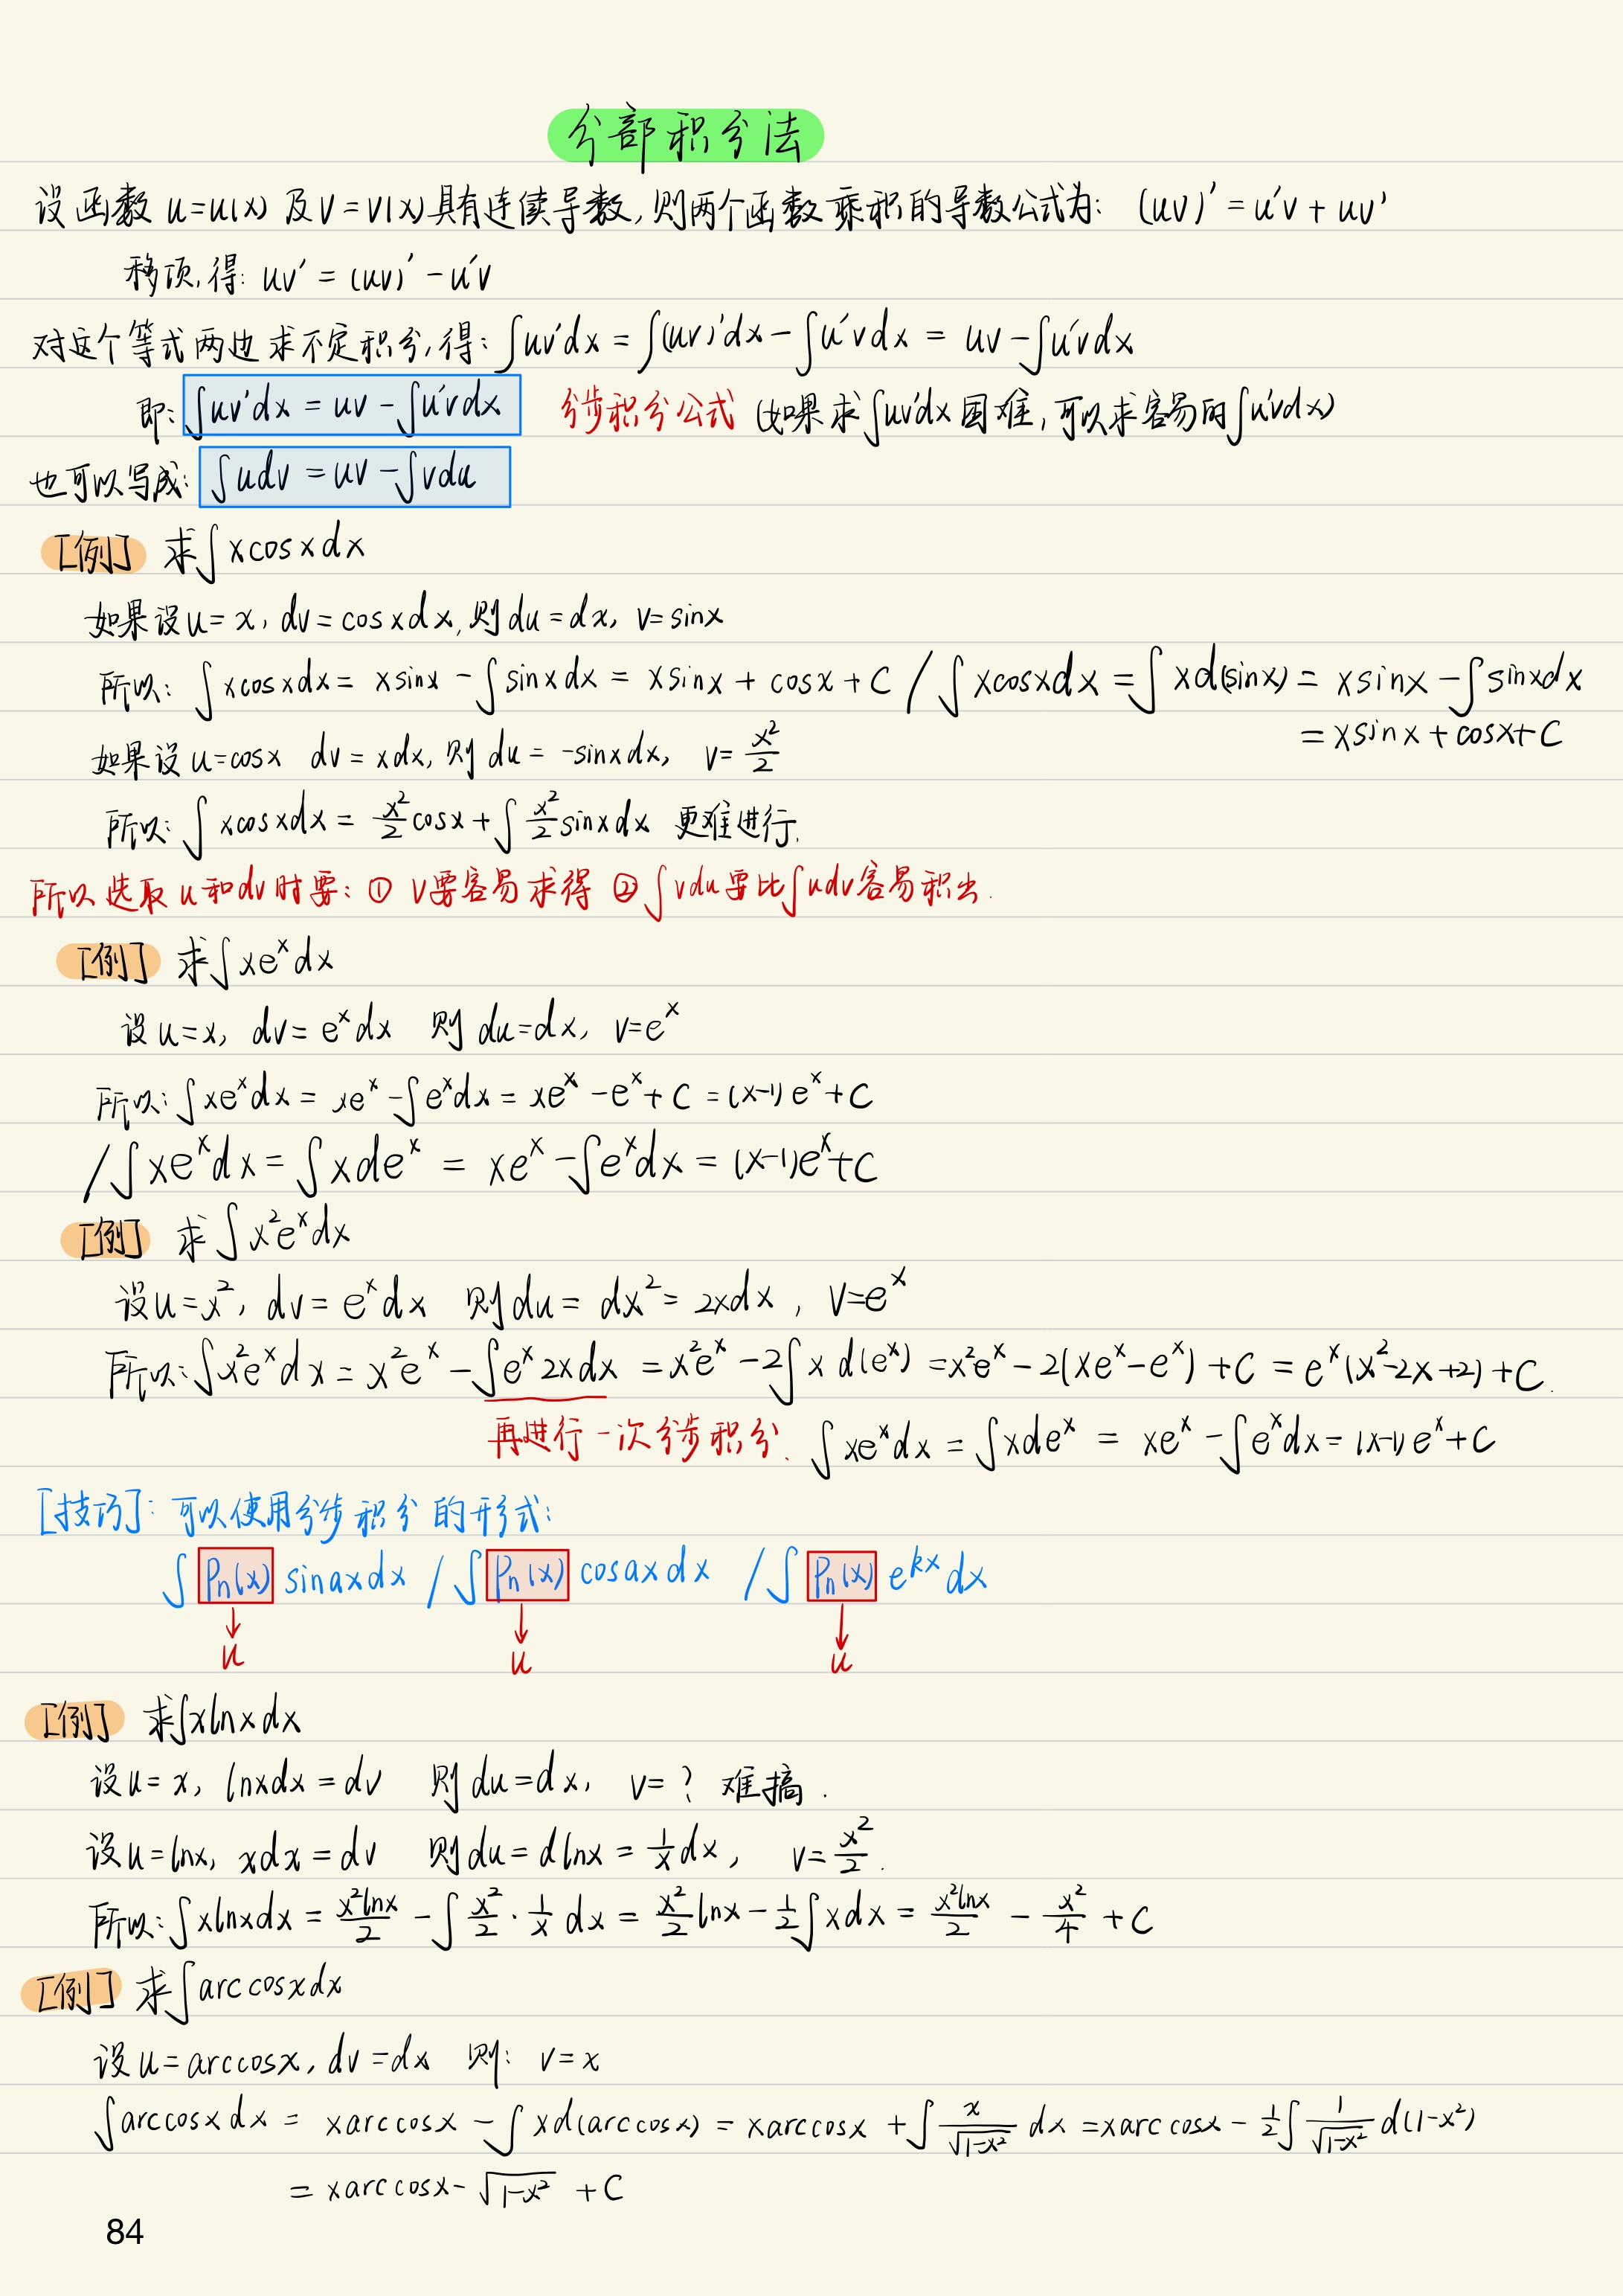 分部积分法
设函数 u=u(x) 及 v=v(x)具有连续导数,则两个函数乘积的导数公式为: (uv)′=u′v+uv′
移项,得: uv′=(uv)′-u′v
对这个等式两边求不定积分,得: ∫uv′dx=∫(uv)′dx-∫u′vdx=uv-∫u′vdx
即: ∫uv′dx=uv-∫u′vdx 分步积分公式 (如果求∫uv′dx困难,可以求容易的∫u′vdx)
也可以写成: ∫udv=uv-∫vdu
[例] 求∫xcosxdx
如果设u=x, dv=cosxdx,则du=dx, v=sinx
所以: ∫xcosxdx=xsinx-∫sinxdx=xsinx+cosx+C / ∫xcosxdx=∫xd(sinx)=xsinx-∫sinxdx
=xsinx+cosx+C
如果设u=cosx dv=xdx,则du=-sinxdx, v=x²/2
所以: ∫xcosxdx=x²/2 cosx+∫x²/2 sinxdx 更难进行.
所以选取u和dv时要: ① v要容易求得 ② ∫vdu要比∫udv容易积出.
[例] 求∫xeˣdx
设u=x, dv=eˣdx 则du=dx, v=eˣ
所以: ∫xeˣdx=xeˣ-∫eˣdx=xeˣ-eˣ+C=(x-1)eˣ+C
/∫xeˣdx=∫xdeˣ=xeˣ-∫eˣdx=(x-1)eˣ+C
[例] 求∫x²eˣdx
设u=x², dv=eˣdx 则du=dx²=2xdx, v=eˣ
所以: ∫x²eˣdx=x²eˣ-∫eˣ2xdx=x²eˣ-2∫xd(eˣ)=x²eˣ-2(xeˣ-eˣ)+C=eˣ(x²-2x+2)+C.
再进行一次分步积分. ∫xeˣdx=∫xdeˣ=xeˣ-∫eˣdx=(x-1)eˣ+C
[技巧]: 可以使用分步积分的形式:
∫Pn(x)sinaxdx /∫Pn(x)cosaxdx /∫Pn(x)eᵏˣdx
↓ ↓ ↓
u u u
[例] 求∫xlnxdx
设u=x, lnxdx=dv 则du=dx, v=? 难搞.
设u=lnx, xdx=dv 则du=dlnx=1/x dx, v=x²/2.
所以: ∫xlnxdx=x²lnx/2-∫x²/2·1/x dx=x²/2 lnx-1/2∫xdx=x²lnx/2-x²/4+C
[例] 求∫arccosxdx
设u=arccosx, dv=dx 则: v=x
∫arccosxdx=xarccosx-∫xd(arccosx)=xarccosx+∫x/√(1-x²) dx=xarccosx-1/2∫1/√(1-x²) d(1-x²)
=xarccosx-√(1-x²)+C
84